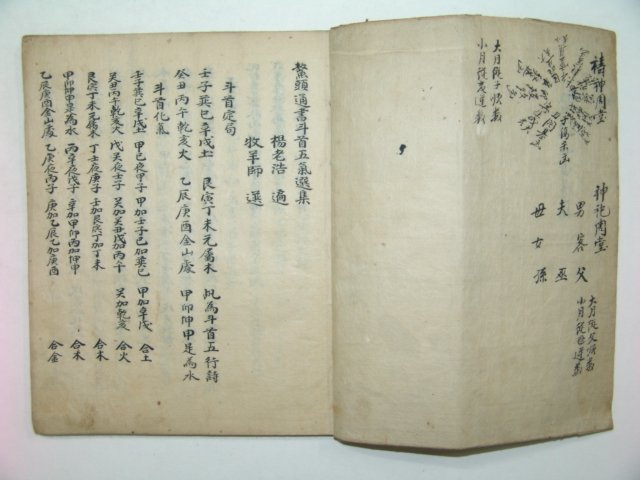 禱神周堂
大月從子順數
小月從
神祀周堂
男 客 父
夫 巫
母 女 孫
大月從父順數
小月從母逆數
鰲頭通書斗首五氣選集
楊老浩 遍
牧羊師 選
斗首定局
壬子巽巳辛戌土 艮寅丁未元屬木 凡為斗首五行詩
癸丑丙午乾亥火 乙辰庚酉金山處 甲卯坤申是為水
斗首化氣
壬子巽巳辛戌土 甲己夜甲子 甲加壬子己加巽巳 甲加辛戌 合土
癸丑丙午乾亥火 戊癸夜壬子 癸加癸丑戊加丙午 癸加乾亥 合火
艮寅丁未元屬木 丁壬夜庚子 壬加艮寅丁加丁未 合木
甲卯坤申是為水 丙辛夜戊子 辛加甲卯丙加坤申 合木
乙辰庚酉金山處 乙庚夜丙子 庚加乙辰乙加庚酉 合金